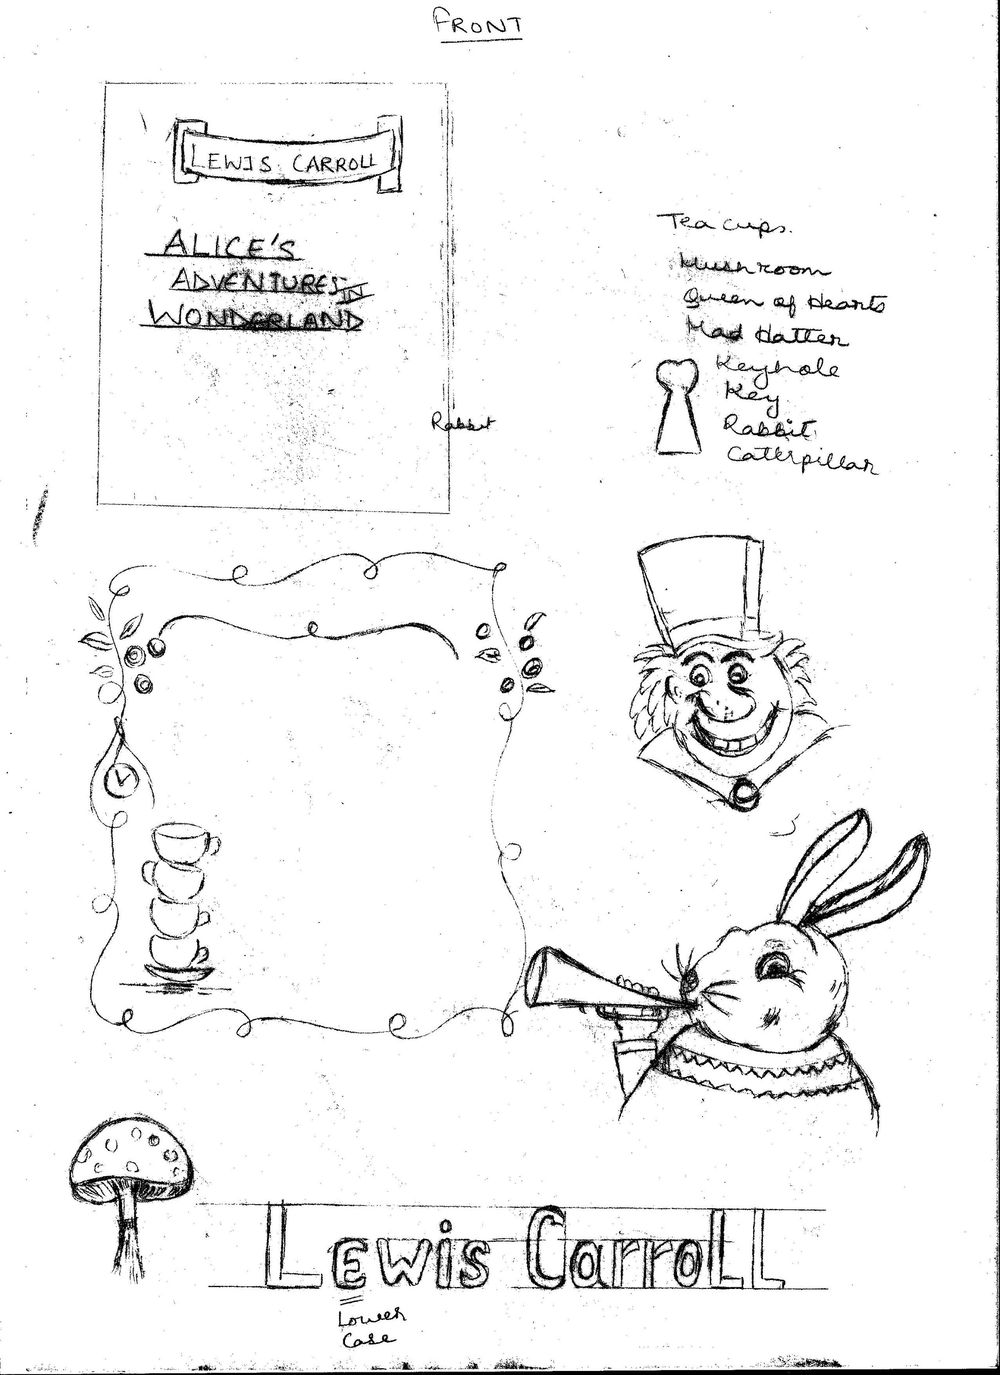 FRONT
LEWIS CARROLL
ALICE'S
ADVENTURES IN
WONDERLAND
Rabbit
Tea cups.
Mushroom
Queen of Hearts
Mad Hatter
Keyhole
Key
Rabbit
Caterpillar
Lewis CarroLL
Lower
Case